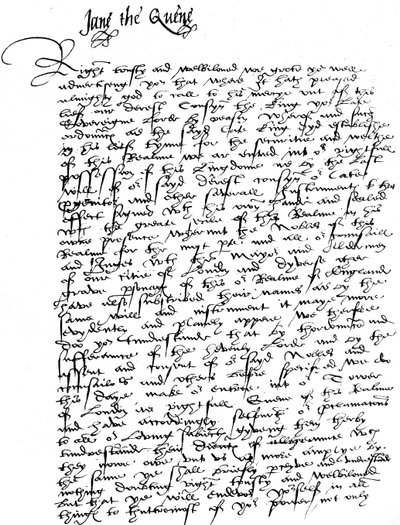 Jane the Quene
Right trusty and welbiloved we grete you well
advertesing you that where it hath pleased
almighty god to call to his mercye out of this
lief our derest Cousyn the King yor late
Sovereigne Lorde by reason wherof and suche
ordinances as the sayd late King dyd establishe
in his lief tyme for the securitie and welthe
of this Realme we ar entred into or rightfull
possession of this Kingdome as by the last
will of or sayd derest cousyn or late
progenitor and other severall instruments to that
effect signed wth his own hande and sealed
wth the greate seale of this Realme in his
owne presence wherunto the Nobles of this
Realme for the most pte and all or counsaill
and Juges wth the Mayor and Aldermen
of our citie of London and dyverse other
grave psonages of this or Realme of England
have also subscribed their names as by the
same will and instrument it maye more
evydently and planely appere we therfore
doo you tunderstande that by thordinaunce and
sufferaunce of the hevenly Lorde and by the
assent and consent of or sayd Nobles and
counsaillors and others before specified we do
this daye make or entree into or Tower
of London as rightfull Quene of this Realme
and have accordingly sett furthe or proclamations
to all or loving subiects gyveng them therby
tunderstand their dueties of allegeaunce wch
they nowe owe unto us as more amplye by
the same ye shall briefly pceyve and understande
nothing doubting right trusty and welbiloved
but that ye will endevor yorself in all
things to thuttermost of yor power not only